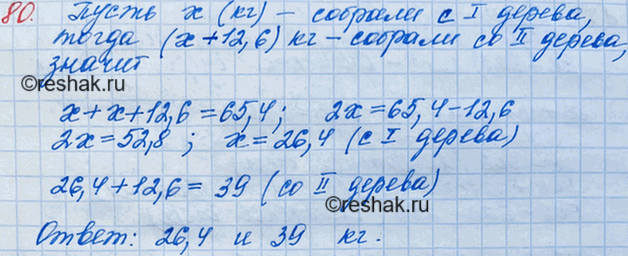 80. Пусть x (кг) – собрали с I дерева,
тогда (x+12,6) кг – собрали со II дерева,
значит
x+x+12,6=65,4; 2x=65,4-12,6
2x=52,8; x=26,4 (с I дерева)
©reshak.ru
26,4+12,6=39 (со II дерева)
©reshak.ru
Ответ: 26,4 и 39 кг.